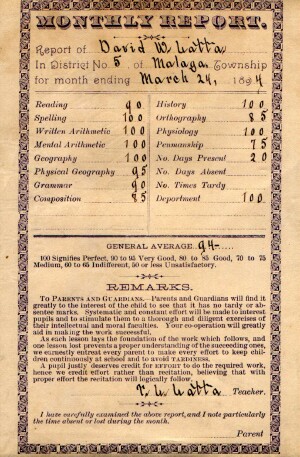 MONTHLY REPORT.
Report of David W. Watta
In District No. 5 of Malaga Township
for month ending March 24, 1894
Reading 90 History 100
Spelling 100 Orthography 85
Written Arithmetic 100 Physiology 100
Mental Arithmetic 100 Penmanship 75
Geography 100 No. Days Present 20
Physical Geography 95 No. Days Absent
Grammar 90 No. Times Tardy
Composition 85 Department 100
GENERAL AVERAGE 94
100 Signifies Perfect, 90 to 95 Very Good, 80 to 85 Good, 70 to 75
Medium, 60 to 65 Indifferent, 50 or less Unsatisfactory.
REMARKS.
TO PARENTS AND GUARDIANS.—Parents and Guardians will find it
greatly to the interest of the child to see that it has no tardy or ab-
sentee marks. Systematic and constant effort will be made to interest
pupils and to stimulate them to a thorough and diligent exercises of
their intellectual and moral faculties. Your co-operation will greatly
aid in making the work successful.
As each lesson lays the foundation of the work which follows, and
one lesson lost prevents a proper understanding of the succeeding ones,
we earnestly entreat every parent to make every effort to keep chil-
dren continuously at school and to avoid TARDINESS.
A pupil justly deserves credit for EFFORT to do the required work,
hence we credit effort rather than recitation, believing that with
proper effort the recitation will logically follow.
Watta Teacher.
I have carefully examined the above report, and I note particularly
the time absent or lost during the month.
Parent